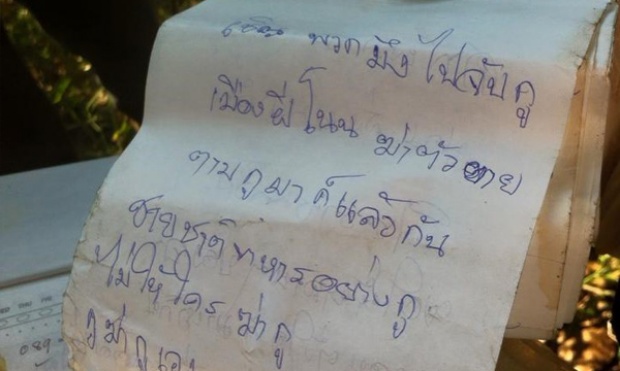 เชิญ พวกมึงไปจับกู
เมืองผีโน่น ฆ่าตัวตาย
ตามกูมาก็แล้วกัน
ชายชาติทหารอย่างกู
ไม่ให้ใคร ฆ่ากู
กูฆ่ากูเอง
089